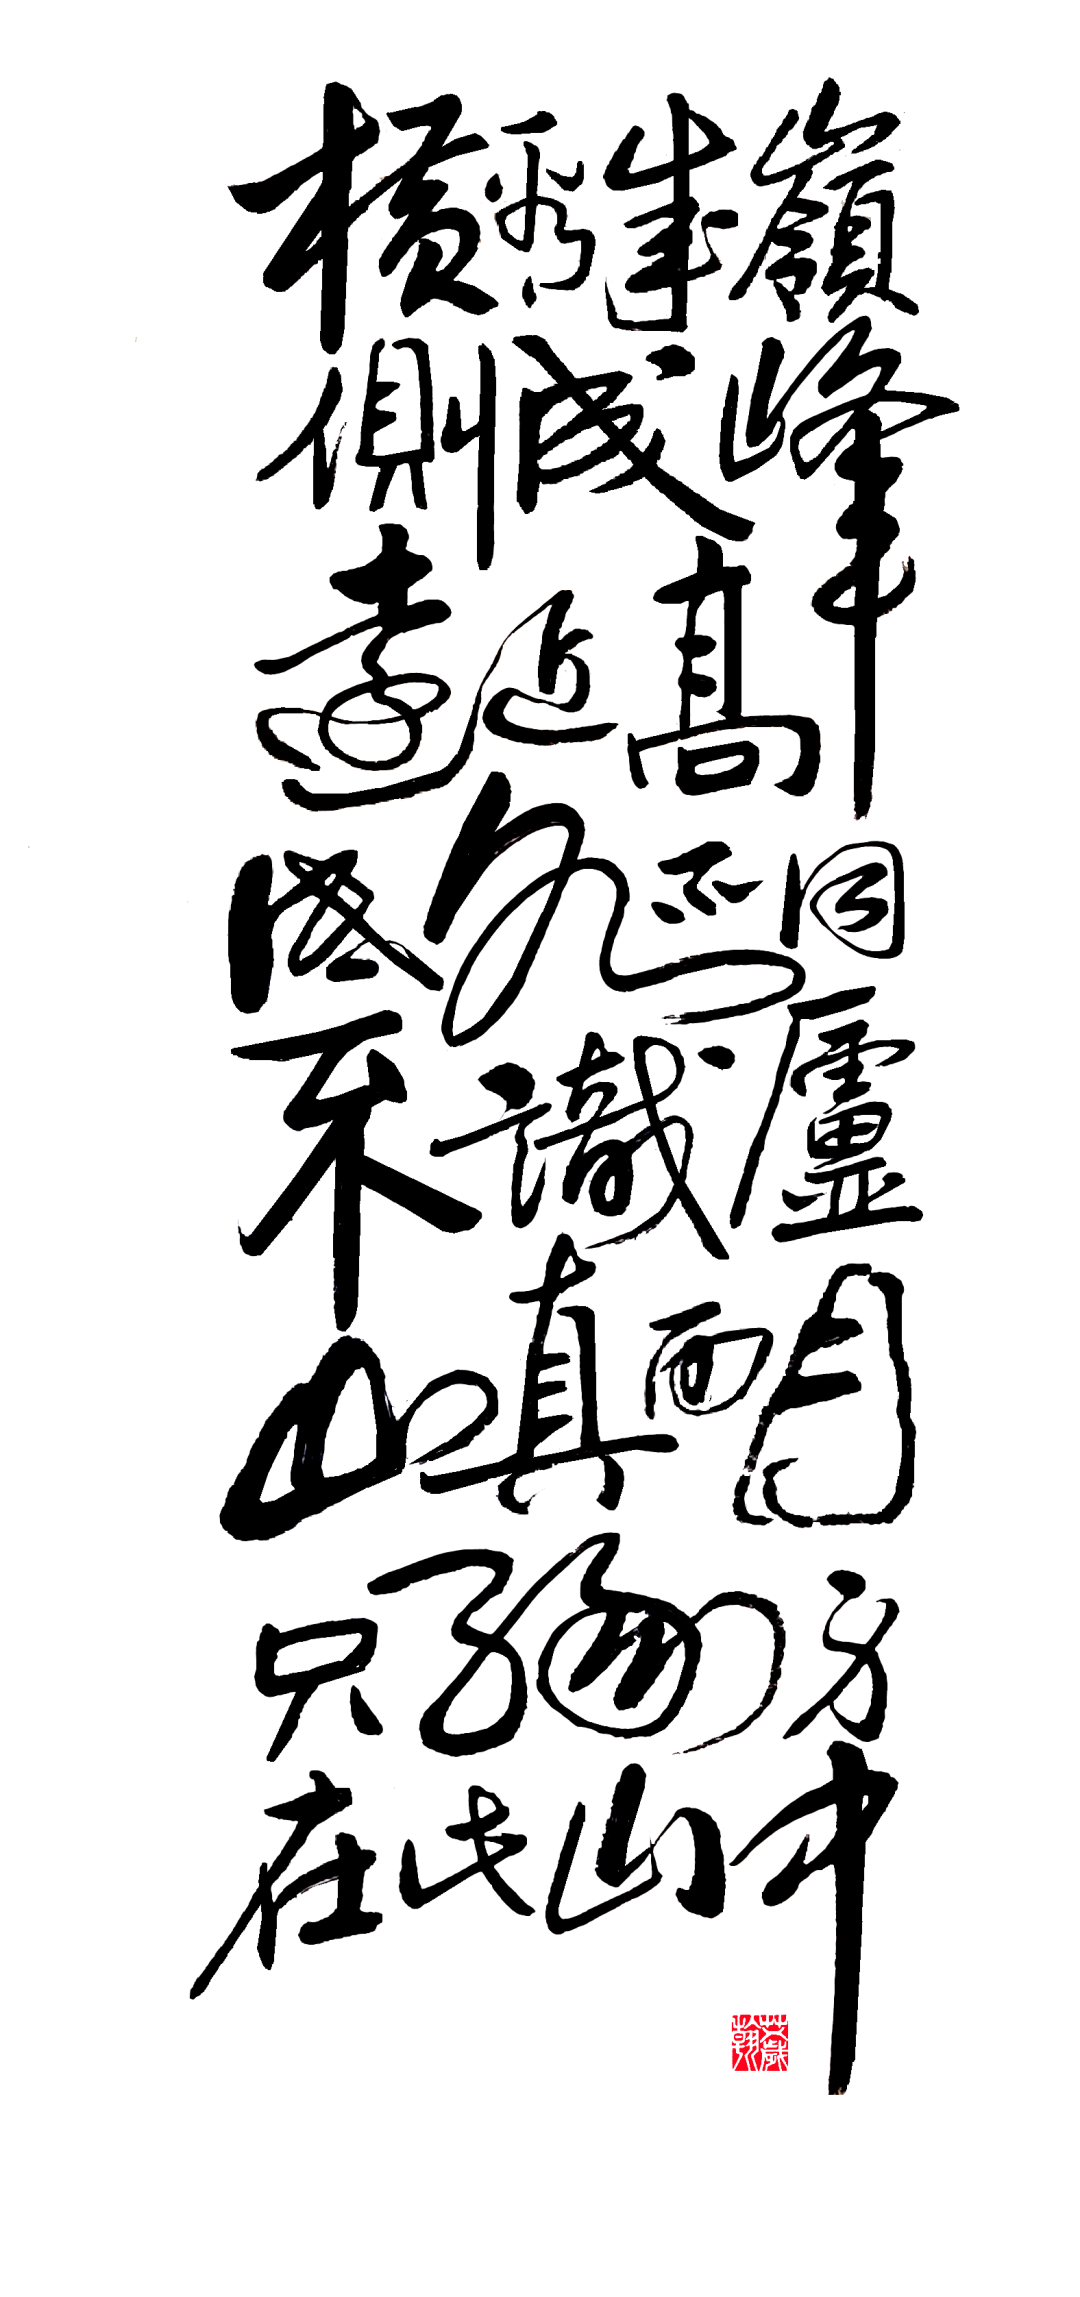 橫看成嶺
側成峰
遠近高
低各不同
不識廬
山真面目
只緣身
在此山中